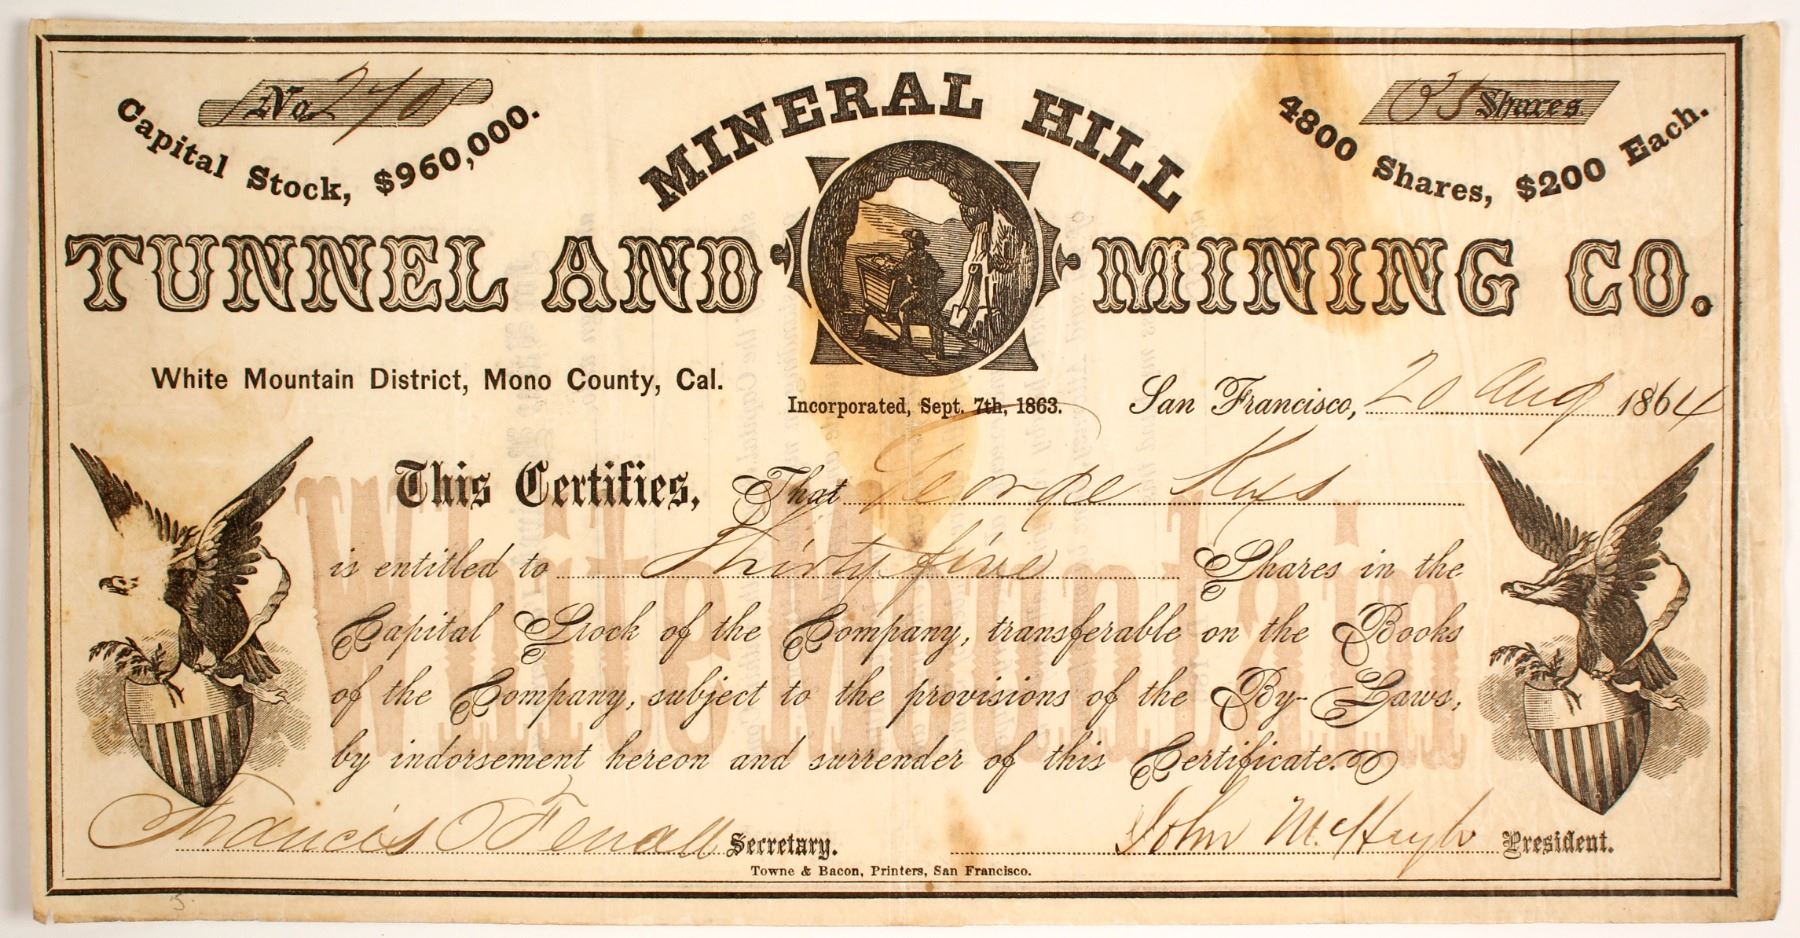 No. 270
Capital Stock, $960,000.
MINERAL HILL
35 Shares
4800 Shares, $200 Each.
TUNNEL AND MINING CO.
White Mountain District, Mono County, Cal.
Incorporated, Sept. 7th, 1863.
San Francisco, 20 Aug 1864
This Certifies, That George Kys
is entitled to Thirty five Shares in the
Capital Stock of the Company, transferable on the Books
of the Company, subject to the provisions of the By-Laws,
by indorsement hereon and surrender of this Certificate.
White Mountain
Francis Secretary.
John President.
Towne & Bacon, Printers, San Francisco.